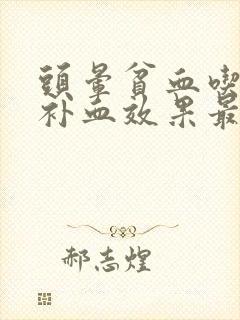 頭暈貧血喫
补血效果最
郝志煌